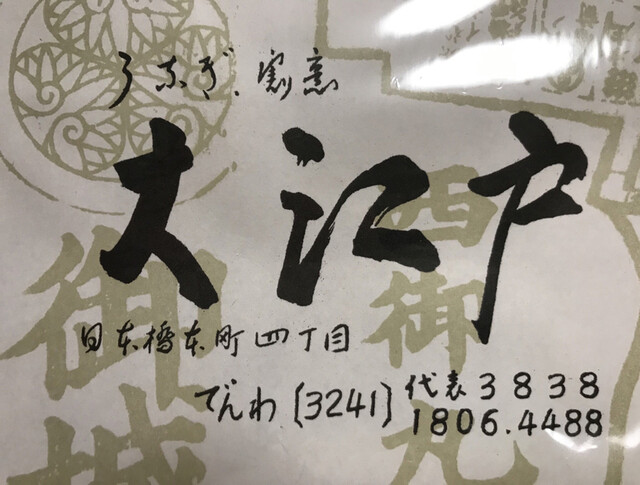 うなぎ、割烹
大江戸
日本橋本町四丁目
でんわ(3241)代表3838
1806.4488
御城
西御丸